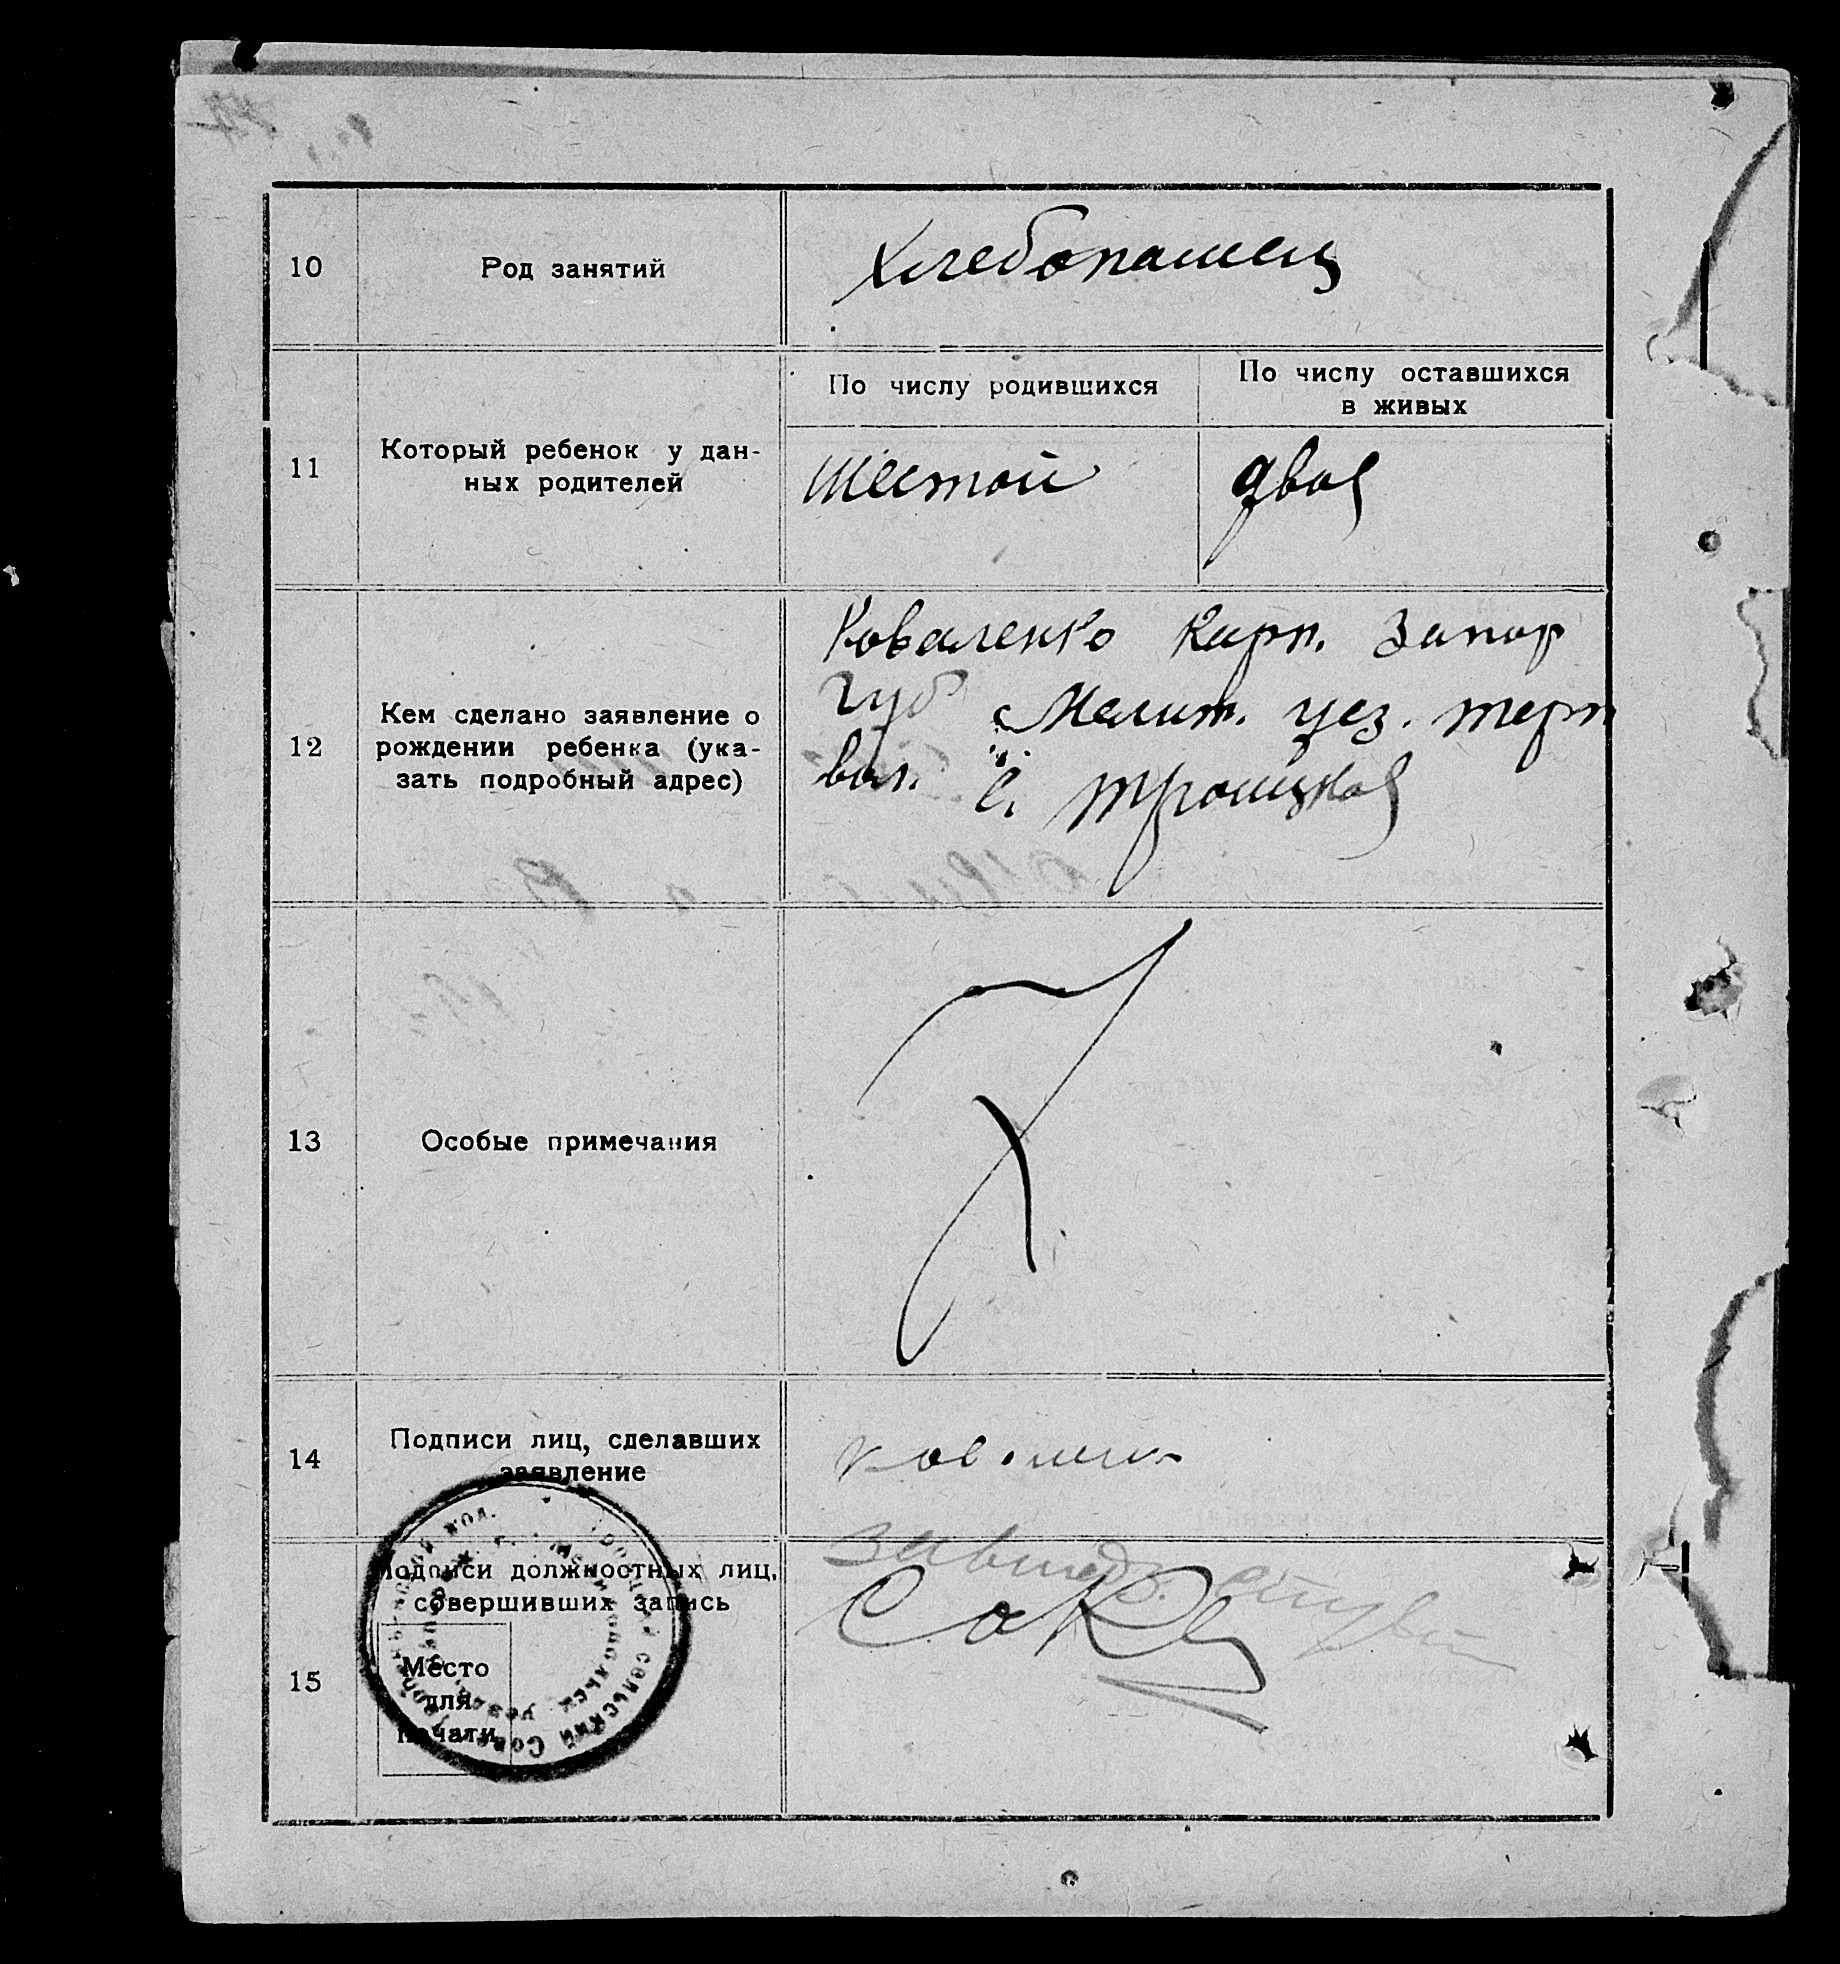 10
Род занятий
Хлебопашец
11
Который ребенок у дан-
ных родителей
По числу родившихся
По числу оставшихся
в живых
шестой
двое
12
Кем сделано заявление о
рождении ребенка (ука-
зать подробный адрес)
Коваленко Карп. Запор
Губ Мелит. уез. терп
вол. с. Троицкое
13
Особые примечания
14
Подписи лиц, сделавших
заявление
15
Подписи должностных лиц,
совершивших запись
Место
для
печати
сельский Совет